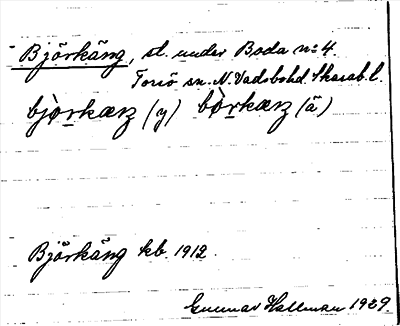 Björkäng, st. under Boda nº 4.
Torsö sn. N. Vadsbohd. Skarab. l.
bjò̱rkæŋ (y) bò̱rkæŋ (ä)
Björkäng kb. 1912.
Gunnar Hallman 1929.